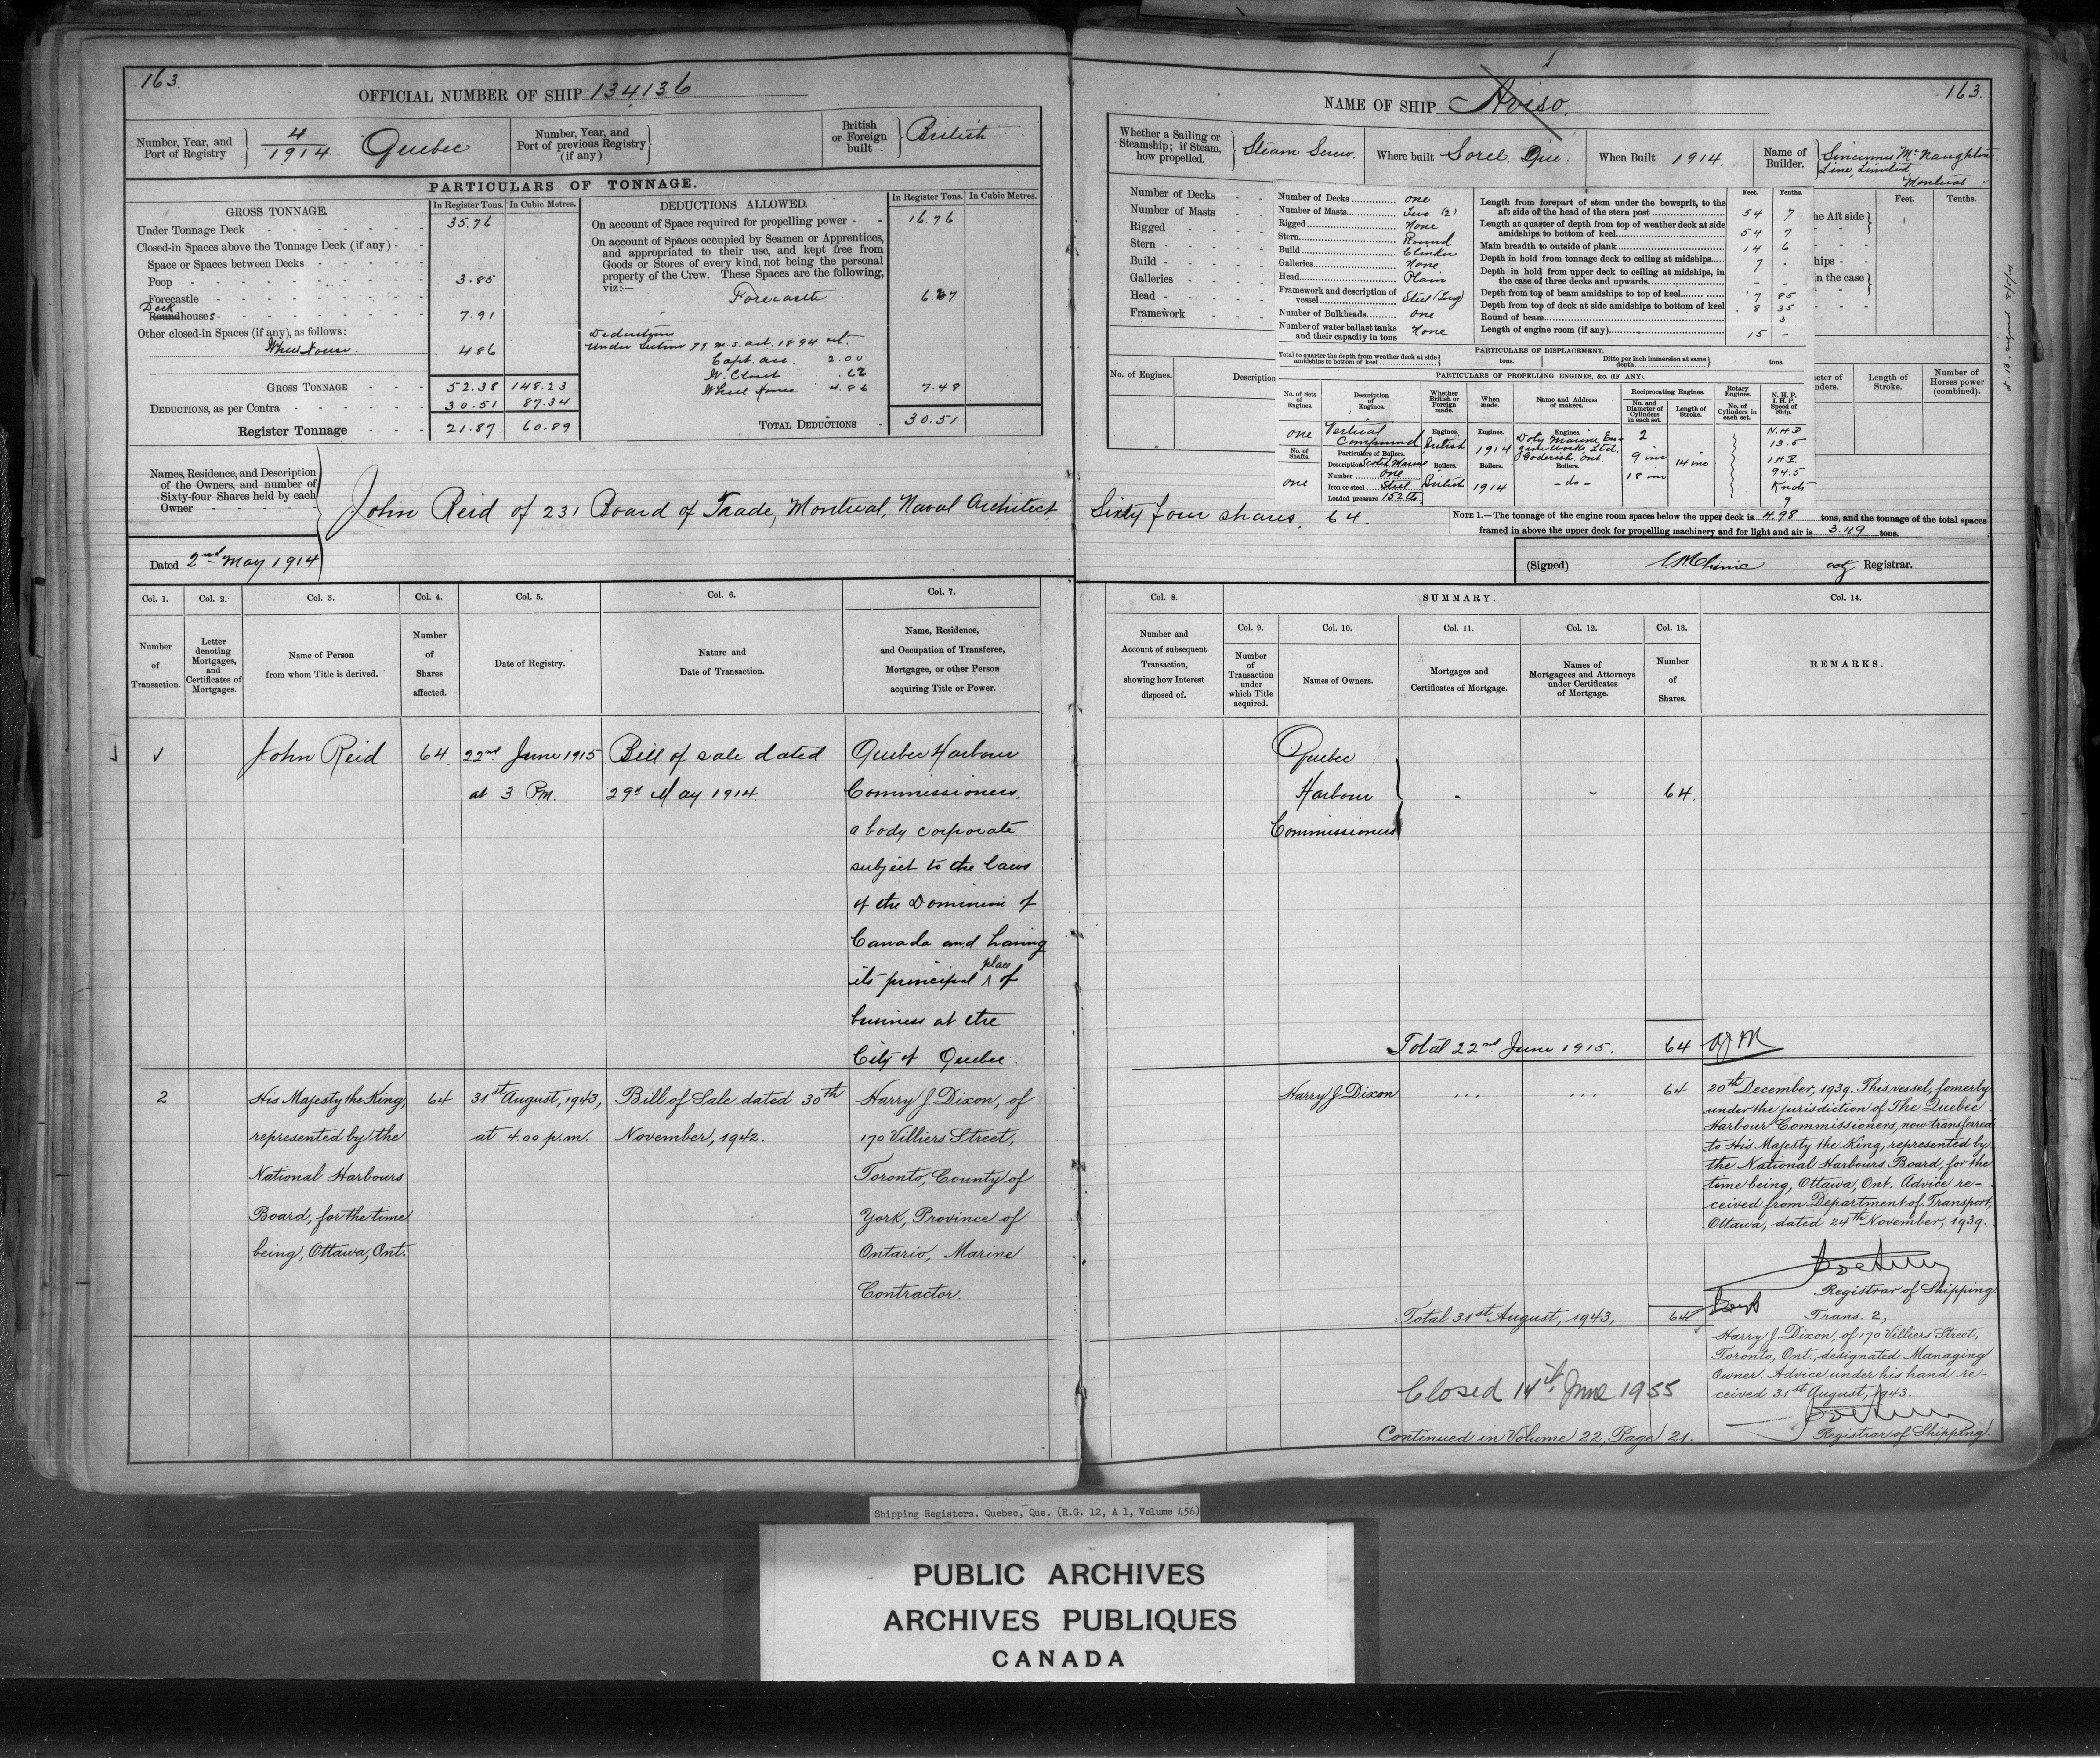 163.
OFFICIAL NUMBER OF SHIP 134136
Number, Year, and Port of Registry
4/1914 Quebec
Number, Year, and Port of previous Registry (if any)
British or Foreign built
British
PARTICULARS OF TONNAGE.
GROSS TONNAGE.
In Register Tons.
In Cubic Metres.
Under Tonnage Deck 35.76
Closed-in Spaces above the Tonnage Deck (if any)
Space or Spaces between Decks
Poop 3.85
Forecastle
Deck
Roundhouses 7.91
Other closed-in Spaces (if any), as follows:
Wheel House. 4.86
GROSS TONNAGE 52.38 148.23
DEDUCTIONS, as per Contra 30.51 87.34
Register Tonnage 21.87 60.89
DEDUCTIONS ALLOWED.
In Register Tons.
In Cubic Metres.
On account of Space required for propelling power 16.76
On account of Spaces occupied by Seamen or Apprentices,
and appropriated to their use, and kept free from
Goods or Stores of every kind, not being the personal
property of the Crew. These Spaces are the following,
viz:—
Forecastle 6.27
Deductions
Under Section 79 M.S. act. 1894
Capt. acc. 2.00
W. Closet .62
Wheel House 4.86 7.48
TOTAL DEDUCTIONS 30.51
Names, Residence, and Description
of the Owners, and number of
Sixty-four Shares held by each
Owner
John Reid of 231 Board of Trade, Montreal, Naval Architect,
Dated 2nd May 1914
Col. 1.
Number of Transaction.
Col. 2.
Letter denoting Mortgages, and Certificates of Mortgages.
Col. 3.
Name of Person from whom Title is derived.
Col. 4.
Number of Shares affected.
Col. 5.
Date of Registry.
Col. 6.
Nature and Date of Transaction.
Col. 7.
Name, Residence, and Occupation of Transferee, Mortgagee, or other Person acquiring Title or Power.
John Reid
64
22nd June 1915
at 3 P.M.
Bill of sale dated
29th May 1914.
Quebec Harbour
Commissioners.
a body corporate
subject to the laws
of the Dominion of
Canada and having
its principal place of
business at the
City of Quebec.
2
His Majesty the King,
represented by the
National Harbours
Board, for the time
being, Ottawa, Ont.
64
31st August, 1943,
at 4.00 p.m.
Bill of Sale dated 30th
November, 1942.
Harry J. Dixon, of
170 Villiers Street,
Toronto, County of
York, Province of
Ontario, Marine
Contractor.
NAME OF SHIP Aviso.
163.
Whether a Sailing or Steamship; if Steam, how propelled.
Steam Screw.
Where built Sorel, Que.
When Built 1914.
Name of Builder.
Sincennes McNaughton
Line, Limited,
Montreal
Number of Decks
Number of Masts
Rigged
Stern
Build
Galleries
Head
Framework
No. of Engines.
Description
Number of Decks one
Number of Masts Two (2)
Rigged None
Stern Round
Build Clinker
Galleries None
Head Plain
Framework and description of vessel Steel (Tug)
Number of Bulkheads one
Number of water ballast tanks and their capacity in tons None
Feet. Tenths.
Length from forepart of stem under the bowsprit, to the aft side of the head of the stern post 54 7
Length at quarter of depth from top of weather deck at side amidships to bottom of keel 54 7
Main breadth to outside of plank 14 6
Depth in hold from tonnage deck to ceiling at midships 7 -
Depth in hold from upper deck to ceiling at midships, in the case of three decks and upwards - -
Depth from top of beam amidships to top of keel 7 85
Depth from top of deck at side amidships to bottom of keel 8 35
Round of beam 3
Length of engine room (if any) 15 -
he Aft side
hips
in the case
Feet.
Tenths.
PARTICULARS OF DISPLACEMENT.
Total to quarter the depth from weather deck at side amidships to bottom of keel tons.
Ditto per inch immersion at same depth tons.
PARTICULARS OF PROPELLING ENGINES, &c. (IF ANY).
No. of Sets of Engines.
Description of Engines.
Whether British or Foreign made.
When made.
Name and Address of makers.
Reciprocating Engines.
No. and Diameter of Cylinders in each set.
Length of Stroke.
Rotary Engines.
No. of Cylinders in each set.
N. H. P.
I. H. P.
Speed of Ship.
one
Vertical Compound
Engines.
British
Engines.
1914
Engines.
Doty Marine Engine Works Ltd. Goderich, Ont.
2
9 ins
18 ins
14 ins
N.H.P
13.5
I.H.P.
94.5
Knots
9
No. of Shafts.
one
Particulars of Boilers.
Description Scotch Marine
Number One
Iron or steel Steel
Loaded pressure 152 lb.
Boilers.
British
Boilers.
1914
Boilers.
- do -
Length of Stroke.
Number of Horses power (combined).
Sixty four shares. 64.
NOTE 1.—The tonnage of the engine room spaces below the upper deck is 4.98 tons, and the tonnage of the total spaces
framed in above the upper deck for propelling machinery and for light and air is 3.49 tons.
(Signed)
actg Registrar.
Col. 8.
Number and Account of subsequent Transaction, showing how Interest disposed of.
SUMMARY.
Col. 9.
Number of Transaction under which Title acquired.
Col. 10.
Names of Owners.
Col. 11.
Mortgages and Certificates of Mortgage.
Col. 12.
Names of Mortgagees and Attorneys under Certificates of Mortgage.
Col. 13.
Number of Shares.
Col. 14.
REMARKS.
Quebec
Harbour
Commissioners
64.
Total 22nd June 1915. 64
Harry J. Dixon
64
20th December, 1939. This vessel, fomerly
under the jurisdiction of The Quebec
Harbour Commissioners, now transferred
to His Majesty the King, represented by
the National Harbours Board, for the
time being, Ottawa, Ont. Advice re-
ceived from Department of Transport,
Ottawa, dated 24th November, 1939.
Registrar of Shipping
Total 31st August, 1943, 64
Trans. 2,
Harry J. Dixon, of 170 Villiers Street,
Toronto, Ont., designated Managing
Owner. Advice under his hand re-
ceived 31st August, 1943.
Registrar of Shipping
Closed 14th June 1955
Continued in Volume 22, Page 21.
Shipping Registers. Quebec, Que. (R.G. 12, A 1, Volume 456)
PUBLIC ARCHIVES
ARCHIVES PUBLIQUES
CANADA